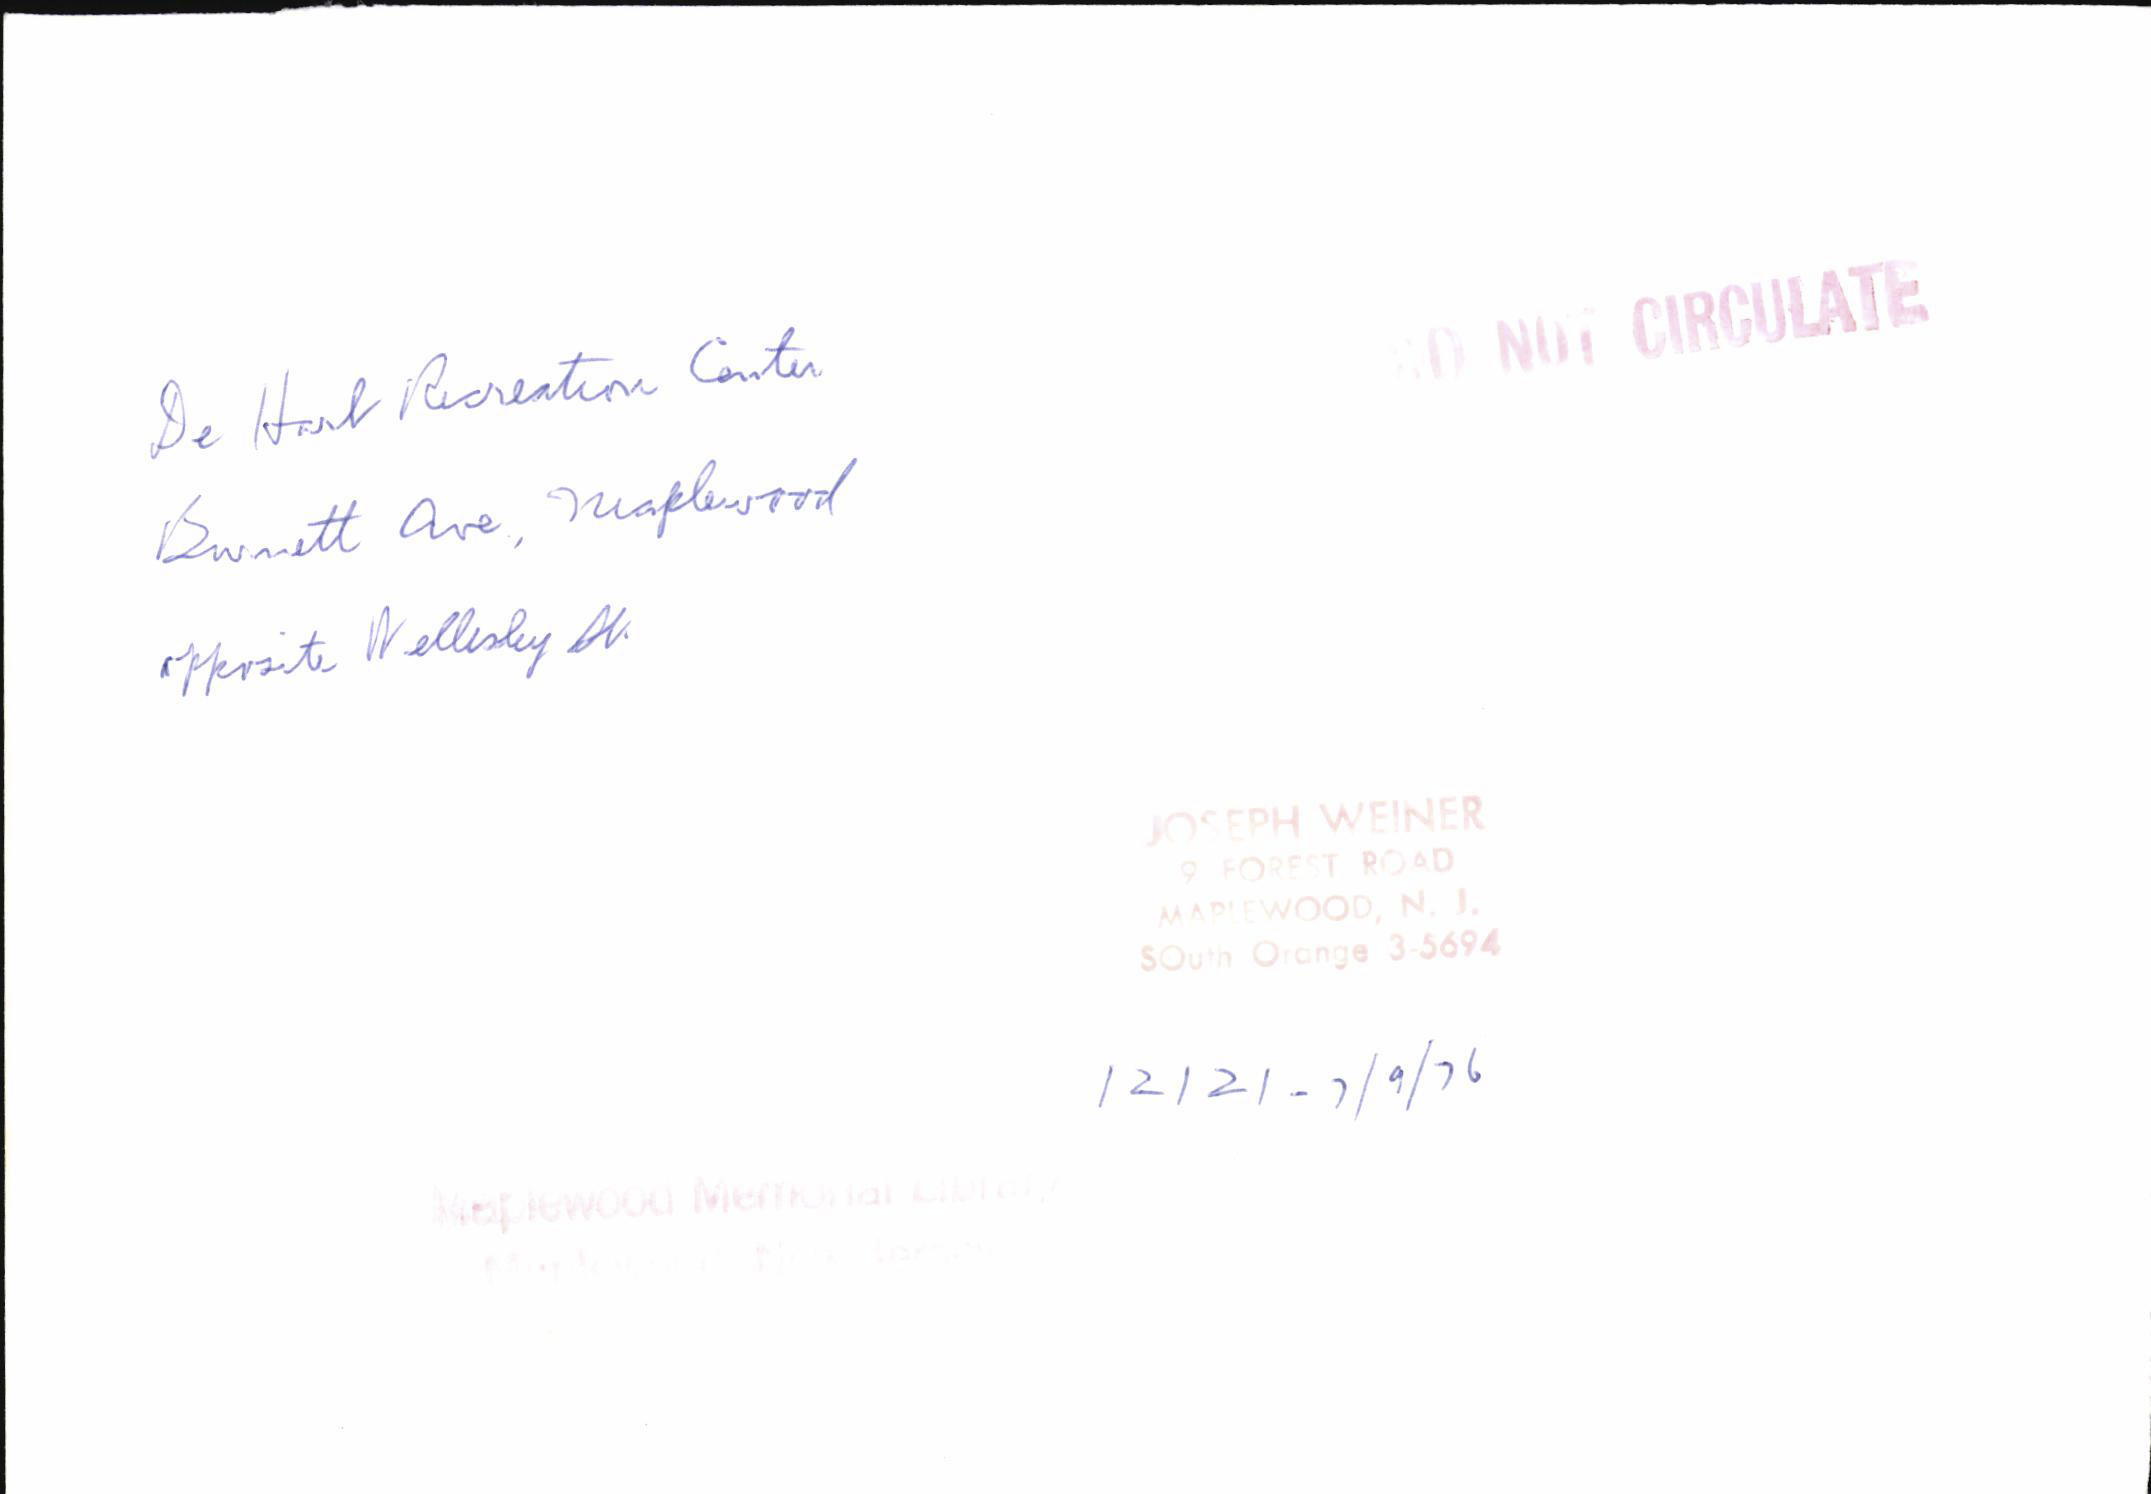 DO NOT CIRCULATE
De Hart Recreation Center
Burnett Ave., Maplewood
opposite Wellesley St.
JOSEPH WEINER
9 FOREST ROAD
MAPLEWOOD, N. J.
SOuth Orange 3-5694
12121 - 7/9/76
Maplewood Memorial Library
Maplewood, New Jersey